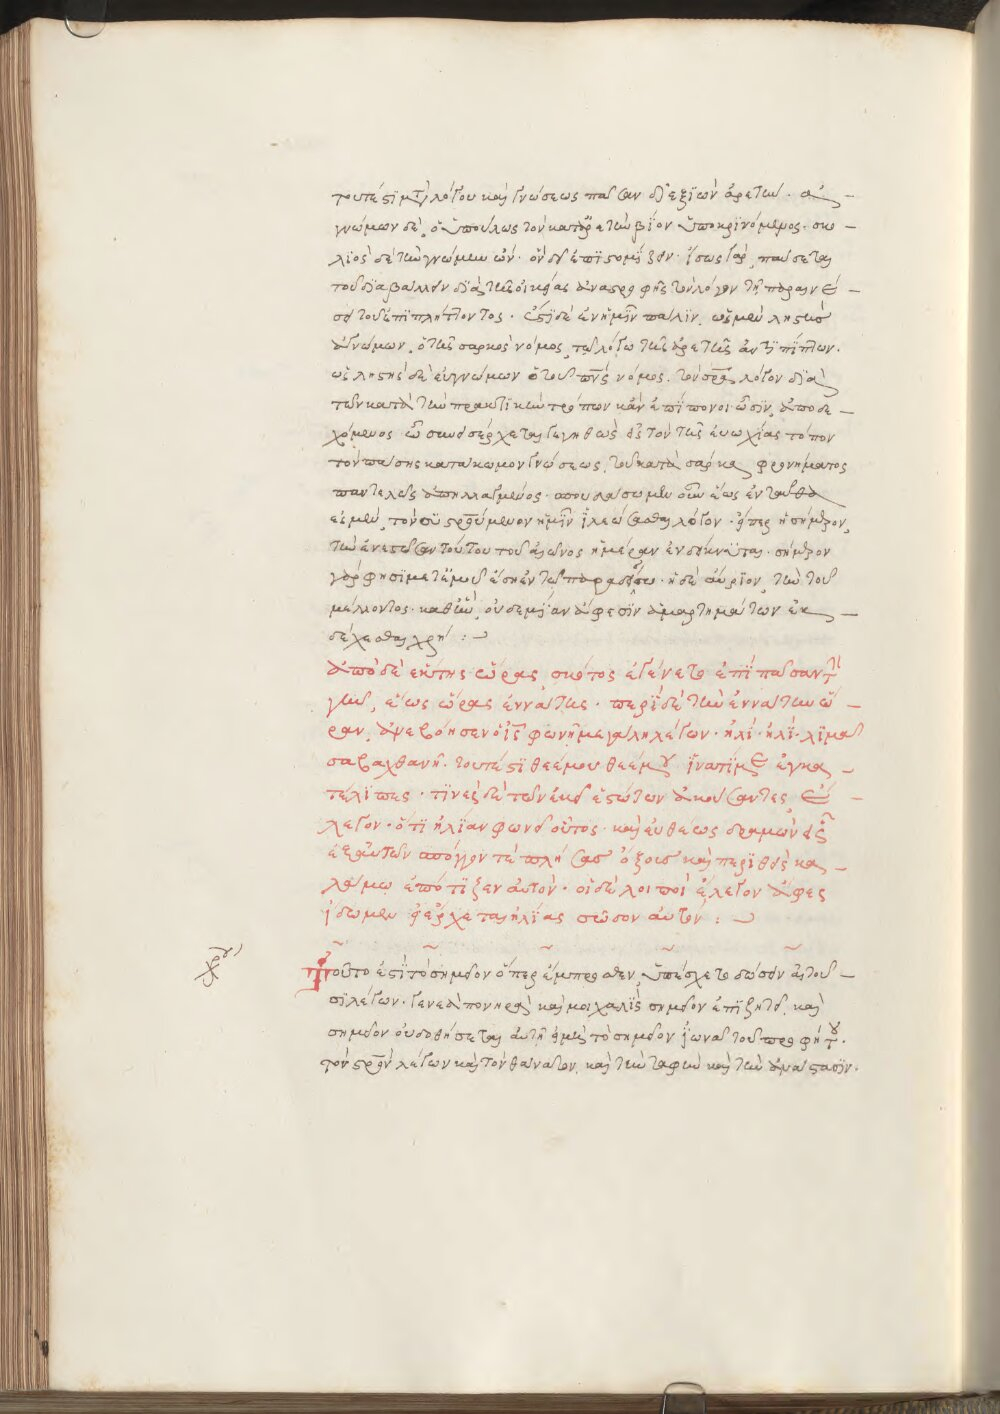 τουτέστι μετὰ λόγου καὶ γνώσεως πᾶσαν διεξιὼν ἀρετήν. ἀ-
γνώμων δὲ, ὁ ὑπούλως τὸν κατ' ἀρετὴν βίον ὑποκρινόμενος. σκο-
λιὸς δὲ τὴν γνώμην ὤν. ὃν δεῖ ἐπιστομίζειν. ἴσως γὰρ παύσεται
τοῦ διαβάλλειν διὰ τῆς οἰκείας ἀναστροφῆς τὸν λόγον τῇ παραινέ-
σει τοῦ ἐπιπλήττοντος. ἔστι δὲ ἐν ἡμῖν πάλιν, ὡς μὲν ληστὴς
ἀγνώμων, ὁ τῆς σαρκὸς νόμος, τῷ λόγῳ τῆς ἀρετῆς ἀντιπίπτων.
ὡς ληστὴς δὲ εὐγνώμων ὁ τοῦ πνς νόμος. τὸν σρα λόγον διὰ
τῶν κατὰ τὴν πρακτικὴν τρόπων κἂν ἐπίπονοι ὦσιν, ἀποδε-
χόμενος ᾧ συνεισέρχεται γεγηθὼς εἰς τὸν τῆς εὐωχίας τόπον
τὸν πάσης κατακώμον γνώσεως, τοῦ κατὰ σάρκα φρονήματος
παντελῶς ἀπηλλαγμένος. σπουδάσωμεν οὖν ἕως ἐνταῦθα
ἐσμὲν, τὸν συσταυρούμενον ἡμῖν ἱλεώσασθαι λόγον. ὅπερ ἡ σήμερον,
τὴν ἐνεστῶσαν τούτου τοῦ αἰῶνος ἡμέραν ἐνδείκνυται. σήμερον
γάρ φησι μετ' ἐμοῦ ἔσῃ ἐν τῷ παραδείσῳ. ἡ δὲ αὔριον, τὴν τοῦ
μέλλοντος. καθ' ἣν, οὐδεμίαν ἄφεσιν ἁμαρτημάτων ἐκ-
δέχεσθαι χρή :
ἀπὸ δὲ ἕκτης ὥρας σκότος ἐγένετο ἐπὶ πᾶσαν τὴν
γῆν, ἕως ὥρας ἐννάτης. περὶ δὲ τὴν ἐννάτην ὥ-
ραν, ἀνεβόησεν ὁ ις φωνῇ μεγάλῃ λέγων. ἠλὶ. ἠλὶ. λιμᾶ
σαβαχθανῆ. τουτέστι θεέ μου θεέ μου ἵνα τί με ἐγκα-
τέλιπες. τινὲς δὲ τῶν ἐκεῖ ἑστώτων ἀκούσαντες ἔ-
λεγον. ὅτι ἠλίαν φωνεῖ οὗτος. καὶ εὐθέως δραμὼν εἷς
ἐξ αὐτῶν σπόγγον τὲ πλήσας ὄξους καὶ περιθεὶς κα-
λάμῳ ἐπότιζεν αὐτόν. οἱ δὲ λοιποὶ ἔλεγον ἄφες
ἴδωμεν εἰ ἔρχεται ἠλίας σῶσον αὐτόν :
Τοῦτο ἐστὶ τὸ σημεῖον ὅπερ ἔμπροσθεν, ὑπέσχετο δώσειν αἰτοῦ-
σι λέγων. γενεὰ πονηρὰ καὶ μοιχαλὶς σημεῖον ἐπιζητεῖ. καὶ
σημεῖον οὐ δοθήσεται αὐτῇ εἰ μὴ τὸ σημεῖον ἰωνᾶ τοῦ προφήτου.
τὸν στρὸν λέγων καὶ τὸν θάνατον, καὶ τὴν ταφὴν καὶ τὴν ἀνάστασιν.